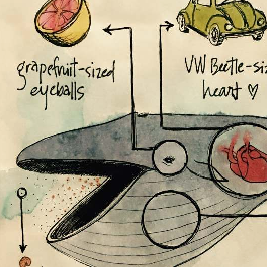 grapefruit-sized
eyeballs
VW Beetle-si
heart ♡